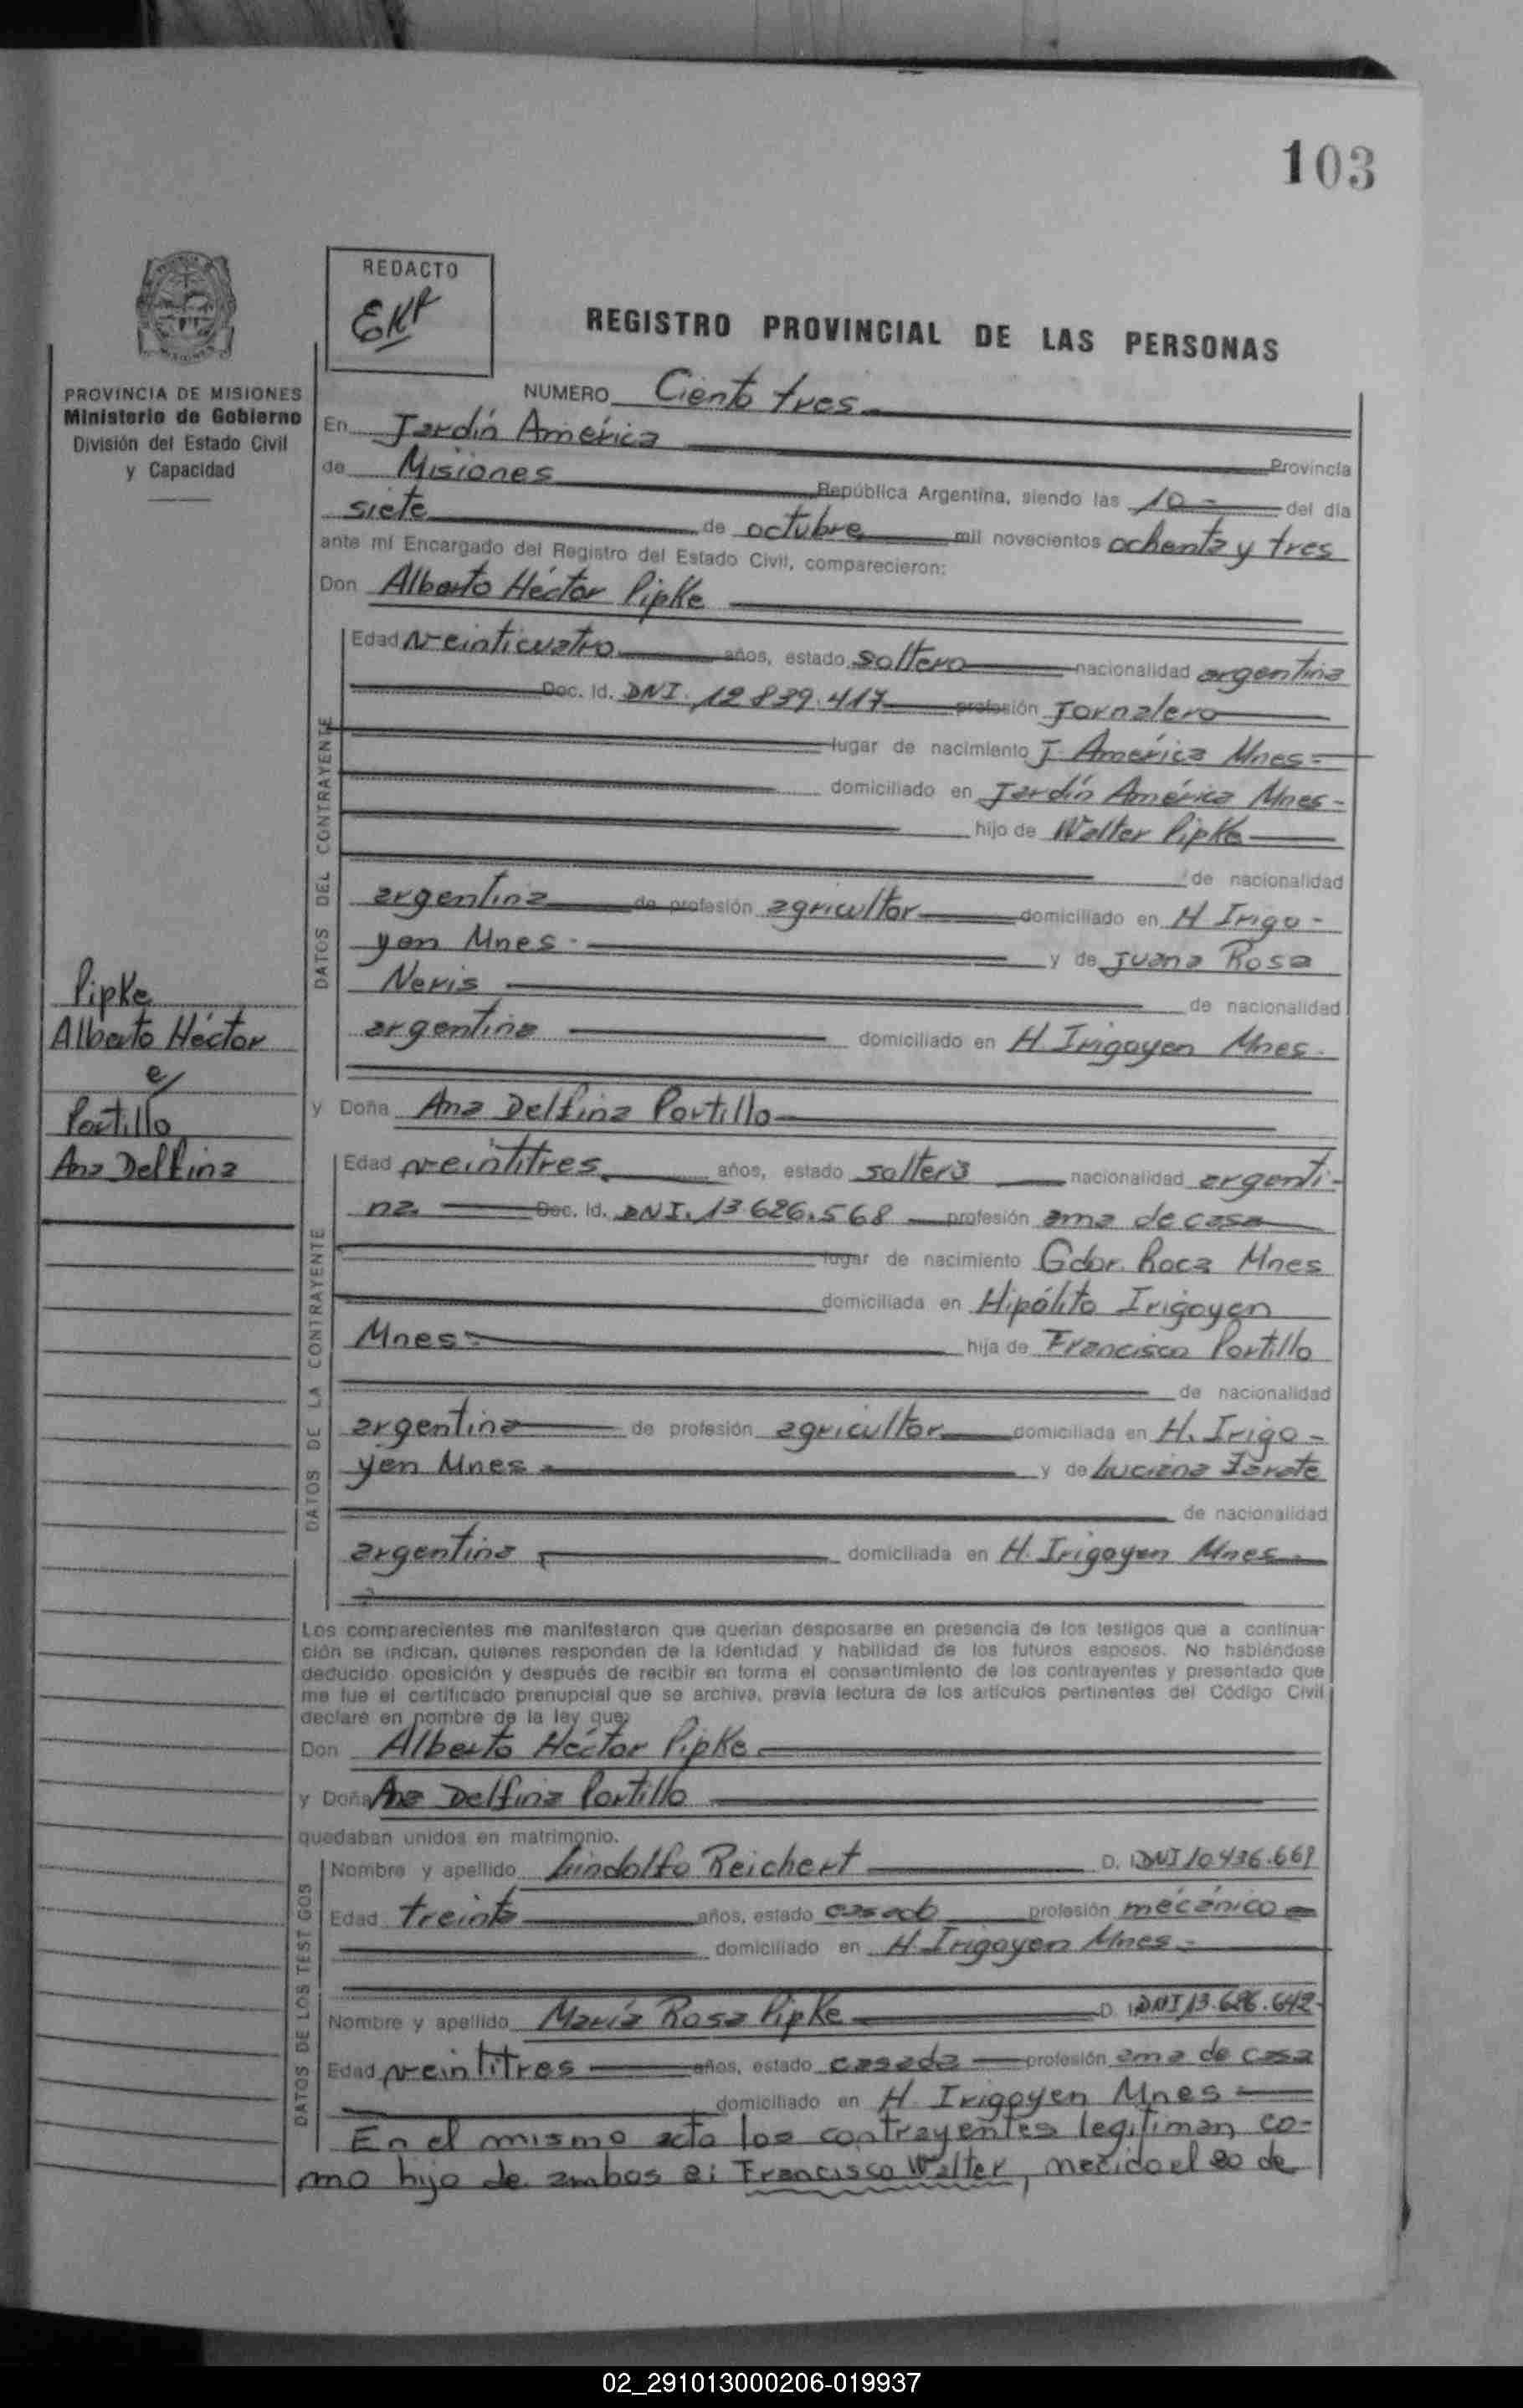 103
REDACTO
REGISTRO PROVINCIAL DE LAS PERSONAS
PROVINCIA DE MISIONES
Ministerio de Gobierno
División del Estado Civil
y Capacidad
NUMERO Ciento tres
En Jardín América
Provincia
de Misiones República Argentina, siendo las 10 - del día
siete de octubre mil novecientos ochenta y tres
ante mí Encargado del Registro del Estado Civil, comparecieron:
Don Alberto Héctor Pipke
DATOS DEL CONTRAYENTE
Edad veinticuatro años, estado soltero nacionalidad argentina
Doc. Id. DNI. 12.839.417 profesión Jornalero
lugar de nacimiento J. América Mnes-
domiciliado en Jardín América Mnes-
hijo de Walter Pipke
de nacionalidad
argentina de profesión agricultor domiciliado en H Irigo-
yen Mnes- y de Juana Rosa
Neris de nacionalidad
argentina domiciliado en H Irigoyen Mnes-
Pipke
Alberto Héctor
e/
Portillo
Ana Delfina
y Doña Ana Delfina Portillo
DATOS DE LA CONTRAYENTE
Edad veintitres años, estado soltera nacionalidad argenti-
na. Doc. Id. DNI. 13.626.568 profesión ama de casa
lugar de nacimiento Gdor. Roca Mnes
domiciliada en Hipólito Irigoyen
Mnes- hija de Francisco Portillo
de nacionalidad
argentina de profesión agricultor domiciliada en H. Irigo-
yen Mnes - y de Luciana Zarate
de nacionalidad
argentina domiciliada en H. Irigoyen Mnes-
Los comparecientes me manifestaron que querían desposarse en presencia de los testigos que a continua-
ción se indican, quienes responden de la identidad y habilidad de los futuros esposos. No habiéndose
deducido oposición y después de recibir en forma el consentimiento de los contrayentes y presentado que
me fue el certificado prenupcial que se archiva, previa lectura de los artículos pertinentes del Código Civil
declaré en nombre de la ley que:
Don Alberto Héctor Pipke
y Doña Ana Delfina Portillo
quedaban unidos en matrimonio.
DATOS DE LOS TESTIGOS
Nombre y apellido Lindolfo Reichert D. I. DNI 10.436.661
Edad treinta años, estado casado profesión mécánico
domiciliado en H Irigoyen Mnes-
Nombre y apellido María Rosa Pipke D. I. DNI 13.626.642
Edad veintitres años, estado casada profesión ama de casa
domiciliado en H Irigoyen Mnes
En el mismo acto los contrayentes legitiman co-
mo hijo de ambos a: Francisco Walter, nacido el 20 de
02_291013000206-019937